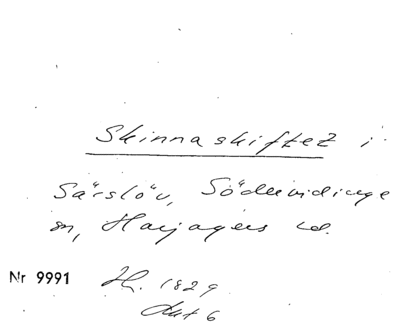 Skinnaskiftet i
Särslöv, Södervidinge
sn, Harjagers hd.
Nr 9991 H. 1829
Akt 6